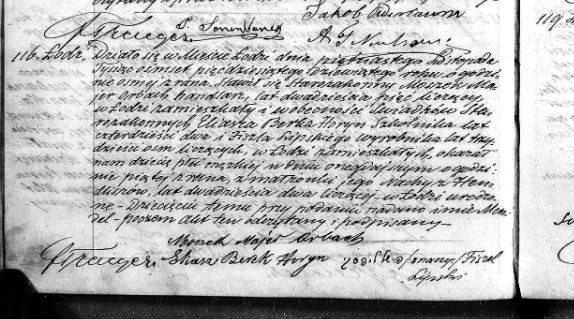 Jakob
116. Łodz, Działo się w Mieście Łodzi dnia piętnastego Listopada
Tysiąc ośmset pięćdziesiątego dziewiątego roku o godzi-
nie ósmej z rana, Stawił się Starozakonny Moszek Ma-
jer Orbach, handlarz, lat dwadzieścia pięć liczący
w Łodzi zamieszkały, w obecności Świadków Sta-
rozakonnych, Eliasza Berka Horyn Szkolnika lat
czterdzieści dwa i Fiszla Lipskiego wyrobnika lat trzy-
dzieści ośm liczących, w Łodzi zamieszkałych, okazał
nam dziecię płci męzkiej w dniu onegdajszym o godzi-
nie piątej z rana, z małżonki jego Nachy z Hen-
lat dwadzieścia dwa liczącej w Łodzi urodzo-
ne - Dziecięciu temu przy podaniu nadano imie Men-
del - poczem akt ten odczytany i podpisany
Moszek Majer Orbach
Eliasz Berek Horyn
Fiszel
Lipski
119